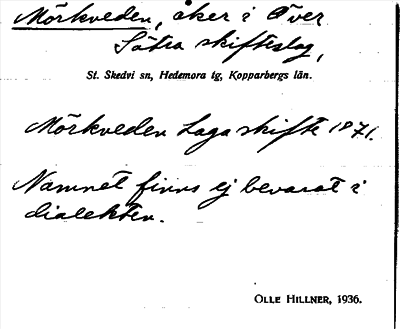 Mörkveden, åker i Över
Sätra skifteslag,
St. Skedvi sn, Hedemora tg, Kopparbergs län.
Mörkveden Laga skifte 1871.
Namnet finns ej bevarat i
dialekten.
OLLE HILLNER, 1936.